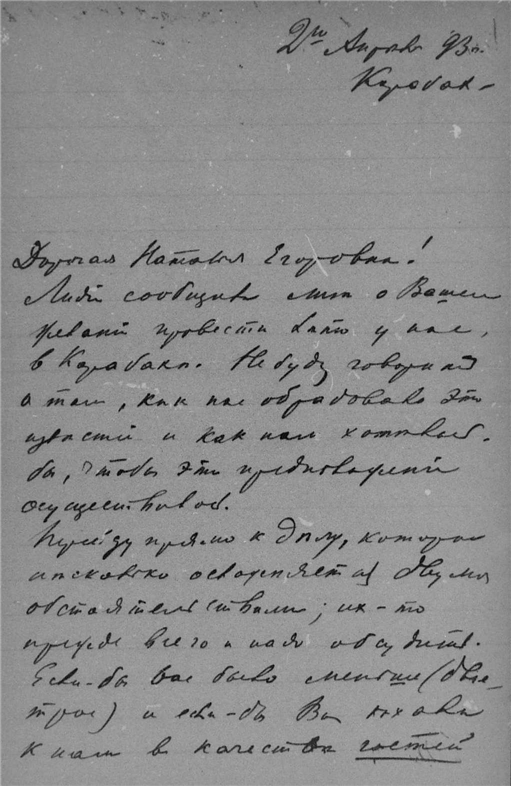 2го Апреля 93 г.
Карабах
Дорогая Наталья Егоровна!
Лидія сообщила мнѣ о Вашем
желаніи провести лѣто у нас,
в Карабахѣ. Не буду говорить
о том, как нас обрадовало это
извѣстіе и как нам хотѣлось
бы, чтобы это предположеніе
осуществилось.
Перейду прямо к дѣлу, которое
нѣсколько осложняется двумя
обстоятельствами; их-то
прежде всего и надо обсудить.
Если-бы Вас было меньше (двое,
трое) и если-бы Вы ѣхали
к нам в качествѣ гостей